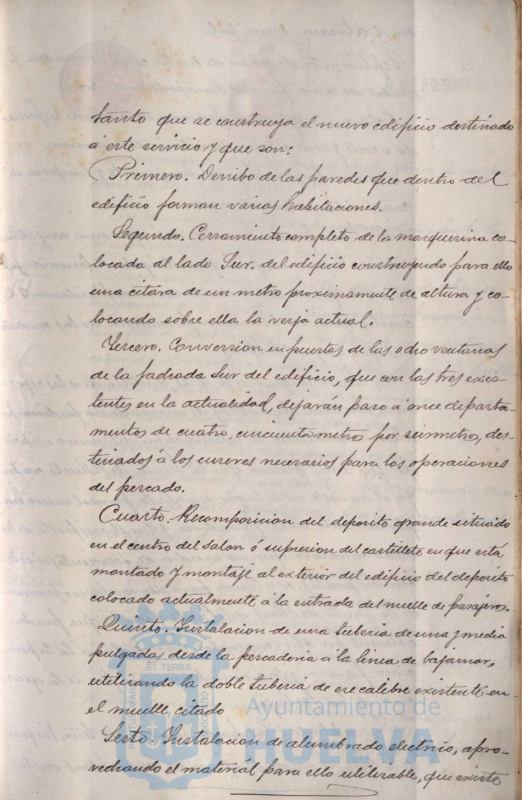 tanto que se construya el nuevo edificio destinado
á este servicio y que son:
Primero. Derribo de las paredes que dentro del
edificio forman varias habitaciones.
Segundo. Cerramiento completo de la marquesina co-
locada al lado Sur del edificio construyendo para ello
una citara de un metro proximamente de altura y co-
locando sobre ella la verja actual.
Tercero. Conversion en puertas de las ocho ventanas
de la fachada Sur del edificio, que con las tres exis-
tentes en la actualidad, dejarán paso á once departa-
mentos de cuatro, cincuenta metros por seis metros, des-
tinados á los envases necesarios para las operaciones
del pescado.
Cuarto. Recomposicion del deposito grande situado
en el centro del salon ó supresion del castillete en que está
montado y montaje al exterior del edificio del deposito
colocado actualmente á la entrada del muelle de pasajeros.
Quinto. Instalacion de una tuberia de una y media
pulgadas desde la pescaderia á la linea de bajamar,
utilizando la doble tuberia de ese calibre existente en
el muelle citado
Sexto. Instalacion de alumbrado electrico, apro-
vechando el material para ello utilizable, que existe
Ayuntamiento de
HUELVA